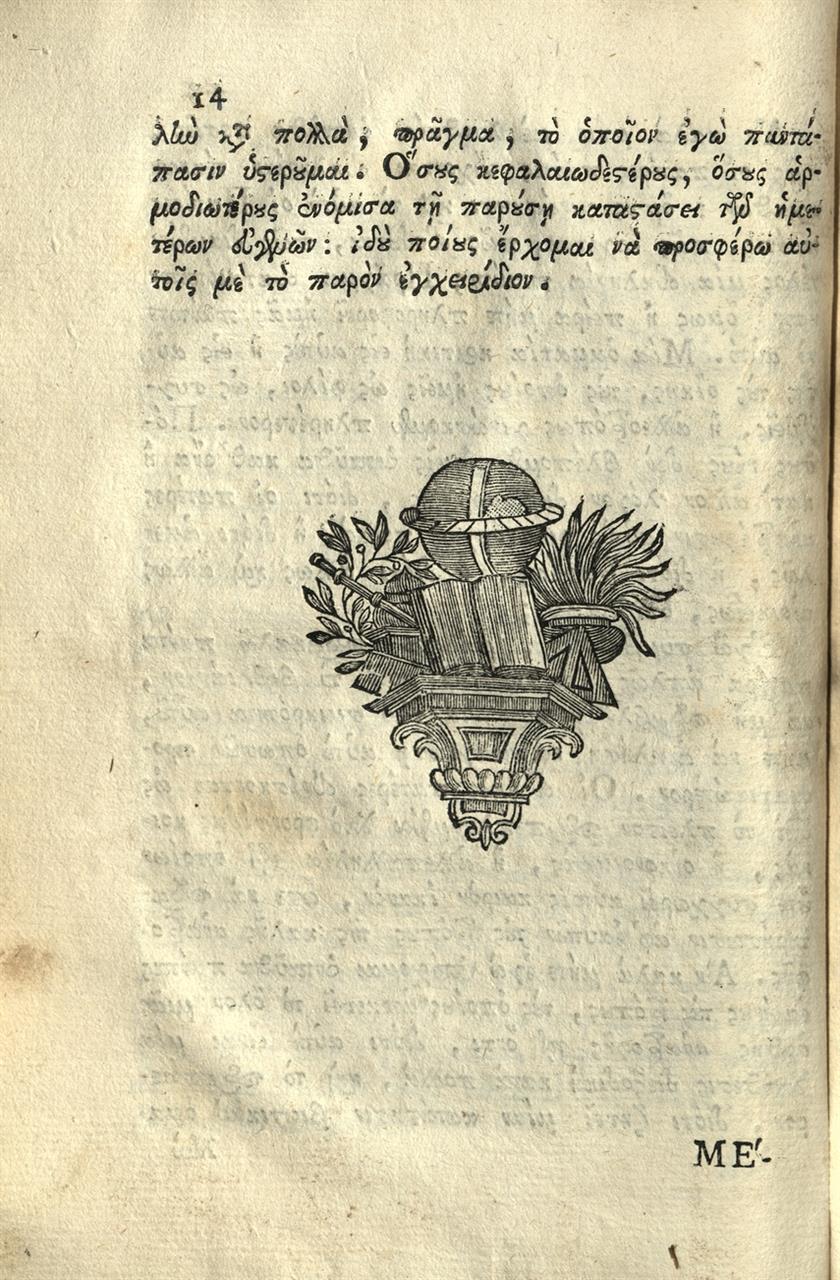 14
λλὼ καὶ πολλὰ, πρᾶγμα, τὸ ὁποῖον ἐγὼ παντά-
πασιν ὑστεροῦμαι. Ὅσους κεφαλαιωδεστέρους, ὅσους ἁρ-
μοδιωτέρους ἐνόμισα τῇ παρούσῃ καταστάσει τῶν ἡμε-
τέρων ἠθῶν: ἰδοὺ ποίους ἔρχομαι νὰ προσφέρω αὐ-
τοῖς μὲ τὸ παρὸν ἐγχειρίδιον.
ΜΕ'-